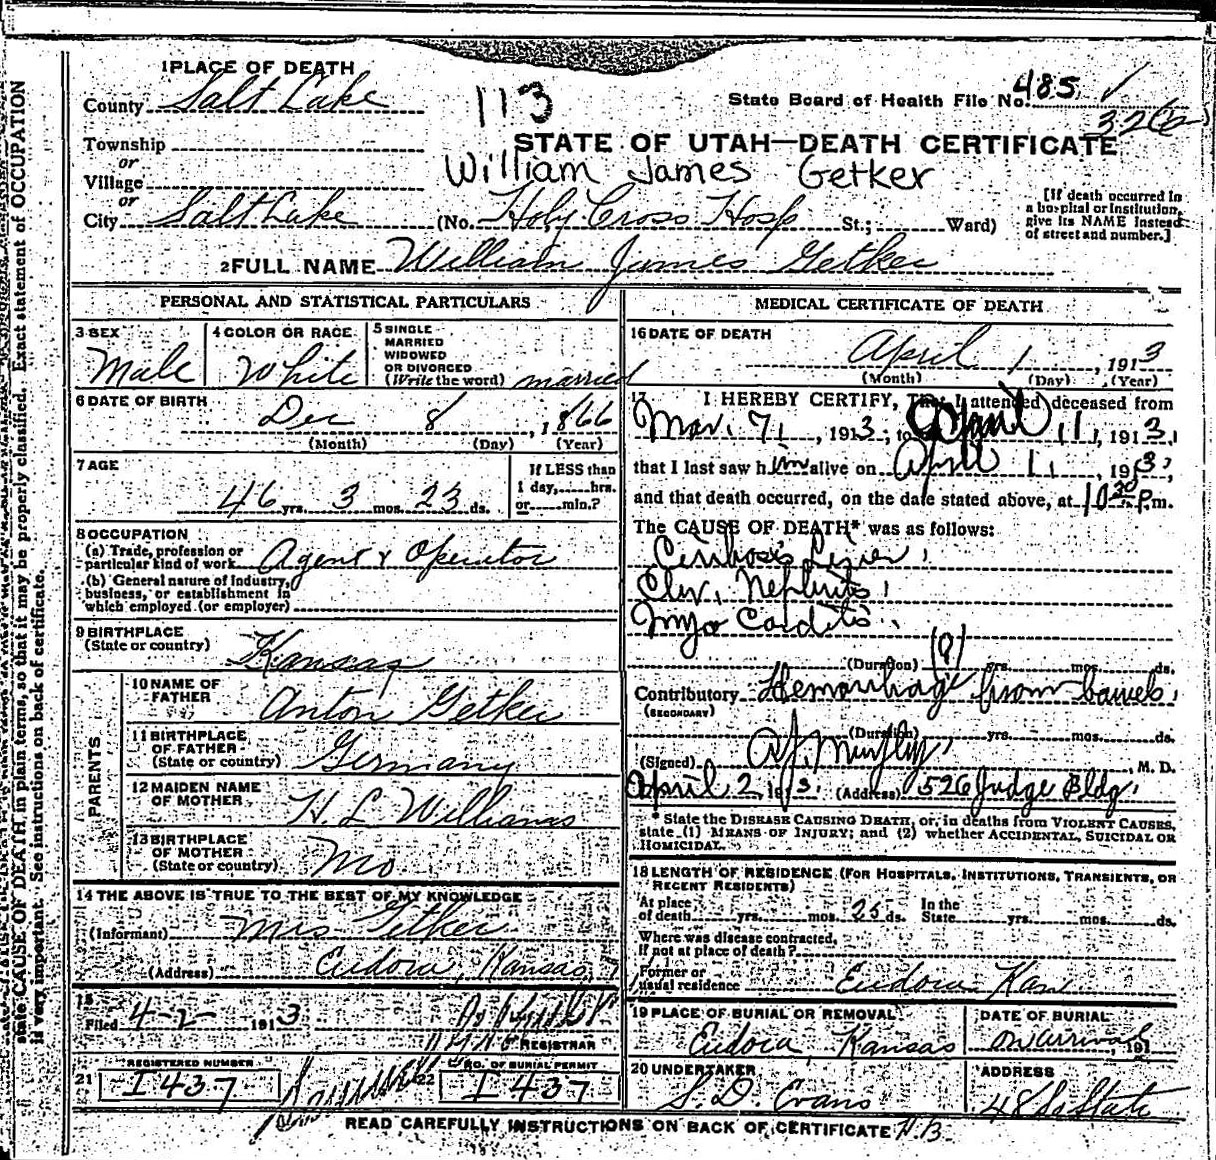 1 PLACE OF DEATH
County Salt Lake
113
State Board of Health File No. 485
326
Township
or
Village
or
City Salt Lake
STATE OF UTAH—DEATH CERTIFICATE
William James Getker
(No. Holy Cross Hosp St.; Ward)
[If death occurred in
a hospital or institution,
give its NAME instead
of street and number.]
2 FULL NAME William James Getker
PERSONAL AND STATISTICAL PARTICULARS
3 SEX
Male
4 COLOR OR RACE
White
5 SINGLE
MARRIED
WIDOWED
OR DIVORCED
(Write the word) married
6 DATE OF BIRTH
Dec 8, 1866
(Month) (Day) (Year)
7 AGE
46 yrs. 3 mos. 23 ds.
If LESS than
1 day, hrs.
or min.?
8 OCCUPATION
(a) Trade, profession or
particular kind of work Agent & Operator
(b) General nature of industry,
business, or establishment in
which employed (or employer)
9 BIRTHPLACE
(State or country) Kansas
PARENTS
10 NAME OF
FATHER Anton Getker
11 BIRTHPLACE
OF FATHER
(State or country) Germany
12 MAIDEN NAME
OF MOTHER H. L. Williams
13 BIRTHPLACE
OF MOTHER
(State or country) Mo
14 THE ABOVE IS TRUE TO THE BEST OF MY KNOWLEDGE
(Informant) Mrs Getker
(Address) Eudora, Kansas
15
Filed 4-2- 1913
REGISTRAR
REGISTERED NUMBER
21 I 437
22 NO. OF BURIAL PERMIT
I 437
MEDICAL CERTIFICATE OF DEATH
16 DATE OF DEATH
April 1, 1913
(Month) (Day) (Year)
17 I HEREBY CERTIFY, That I attended deceased from
Mar. 7, 1913; to April 1, 1913,
that I last saw him alive on April 1, 1913,
and that death occurred, on the date stated above, at 10 30 P.m.
The CAUSE OF DEATH* was as follows:
Cirrhosis Liver,
Chr. Nephritis,
Myo Carditis.
(Duration) (?) yrs. mos. ds.
Contributory Hemorrhage from bowels.
(SECONDARY)
(Duration) yrs. mos. ds.
(Signed) A. J. Murphy, M. D.
April 2, 1913. (Address) 526 Judge Bldg.
* State the DISEASE CAUSING DEATH, or, in deaths from VIOLENT CAUSES,
state (1) MEANS OF INJURY; and (2) whether ACCIDENTAL, SUICIDAL OR
HOMICIDAL.
18 LENGTH OF RESIDENCE (FOR HOSPITALS, INSTITUTIONS, TRANSIENTS, OR
RECENT RESIDENTS)
At place
of death yrs. mos. 25 ds.
In the
State yrs. mos. ds.
Where was disease contracted,
if not at place of death?
Former or
usual residence Eudora Kans
19 PLACE OF BURIAL OR REMOVAL
Eudora, Kansas
DATE OF BURIAL
on arrival, 191
20 UNDERTAKER
S. D. Evans
ADDRESS
48 So State
READ CAREFULLY INSTRUCTIONS ON BACK OF CERTIFICATE H.B.
state CAUSE OF DEATH in plain terms, so that it may be properly classified. Exact statement of OCCUPATION
is very important. See instructions on back of certificate.